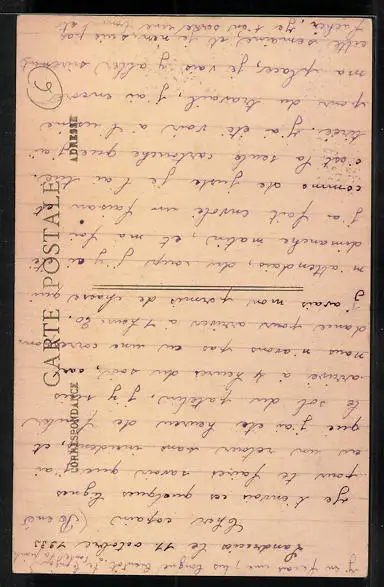 CARTE POSTALE
CORRESPONDANCE
ADRESSE
6
Landrecies le 17 octobre 1933
Cher copain (René)
je t'envois ces quelques lignes
pour te faire savoir que j'ai
eu un retour sans incident, et,
que j'ai été heureux de
le sol du patelin, j'y suis
arrivé à 4 heures du soir, car
nous n'avons pas eu une
dance pour arriver à
j'avais mon permis de chasse qui
m'attendais, du coup j'y ai été
dimanche matin, et ma foi
j'ai fait envolé un faisan et
comme de juste je l'ai tué.
c'est la seule cartouche que j'ai
tirée. j'ai été voir à l'usine
pour du travail, j'ai encore
ma place, je vais y aller surement
cette semaine, et je n'en suis pas
faché, je t'en